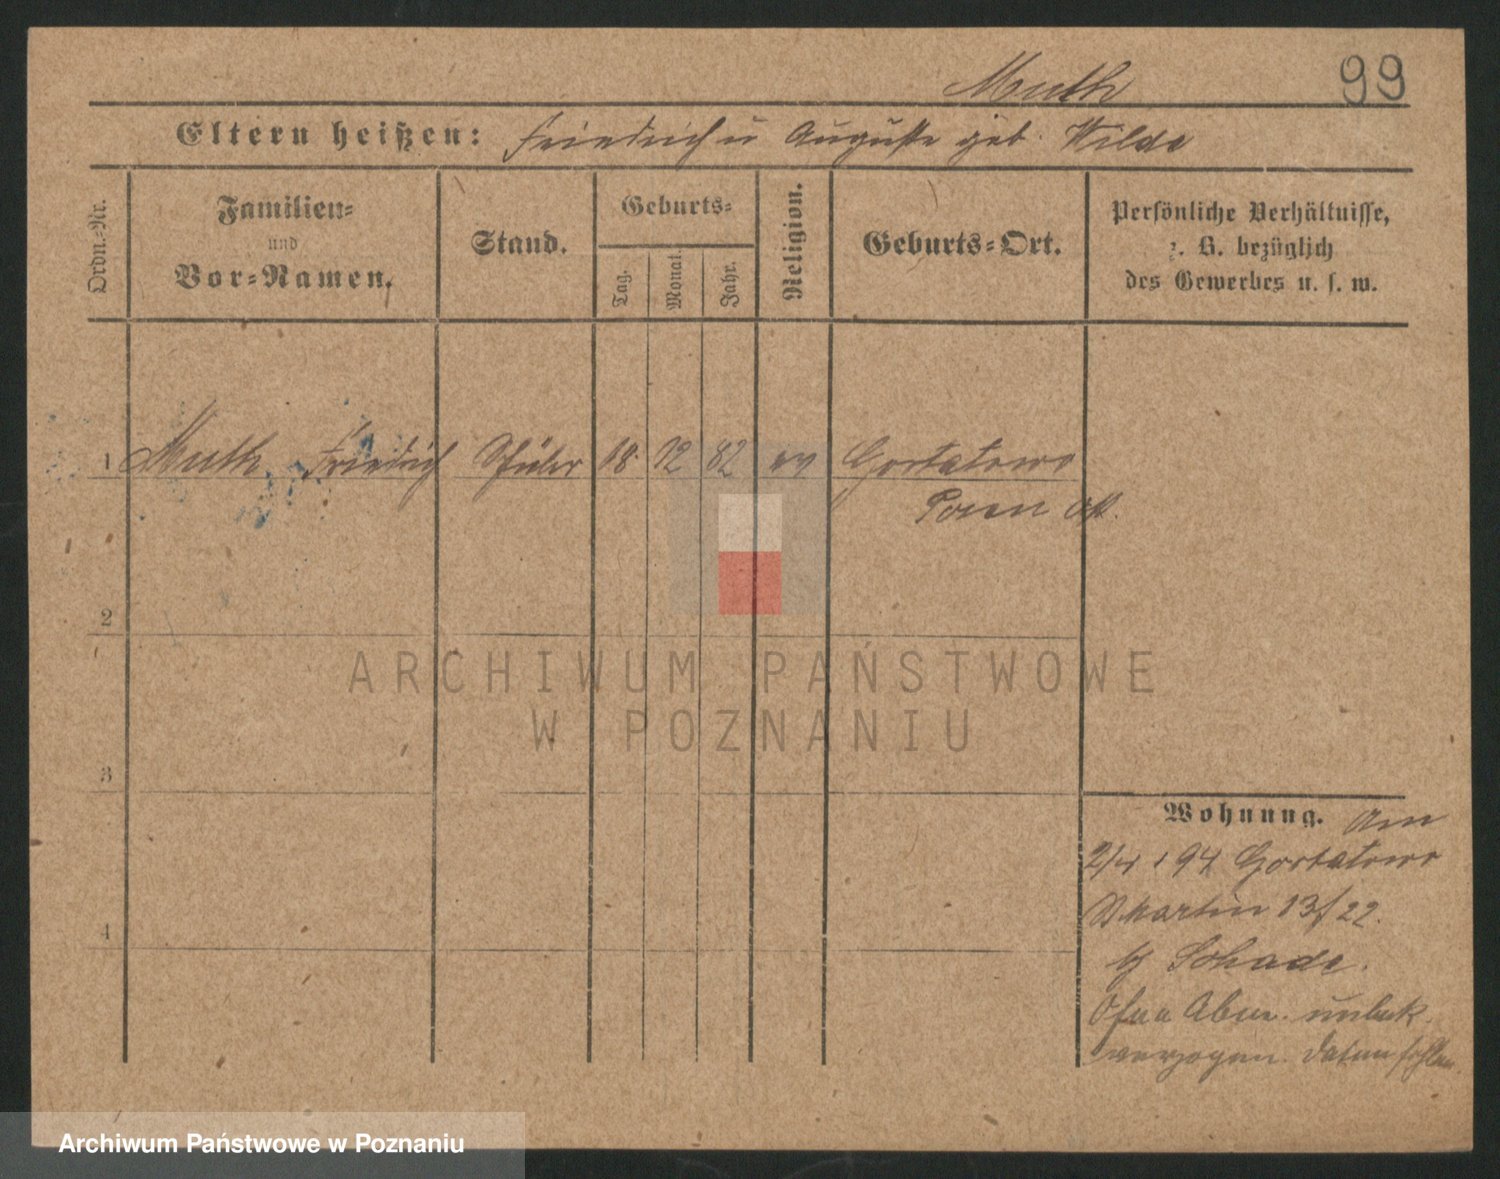 Muth 99
Eltern heißen: Friedrich u Auguste geb. Wilde
Ordn.-Nr.
Familien-
und
Vor-Namen.
Stand.
Geburts-
Tag.
Monat.
Jahr.
Religion.
Geburts-Ort.
Persönliche Verhältnisse,
z. B. bezüglich
des Gewerbes u. s. w.
1 Muth Friedrich Schüler 18 12 82 ev Gortatowo
Posen Ost.
2
ARCHIWUM PAŃSTWOWE
W POZNANIU
3
Wohnung. Am
2/4 94 Gortatowo
St Martin 13/22.
b/ Schade.
4
Ohne Abm. unbek.
verzogen. Datum fehlen.
Archiwum Państwowe w Poznaniu